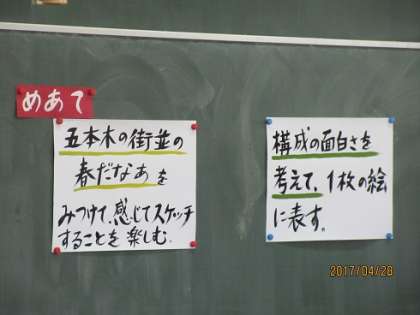 めあて
五本木の街並の
春だなあを
みつけて、感じてスケッチ
することを楽しむ。
構成の面白さを
考えて、1枚の絵
に表す。
2017/04/28